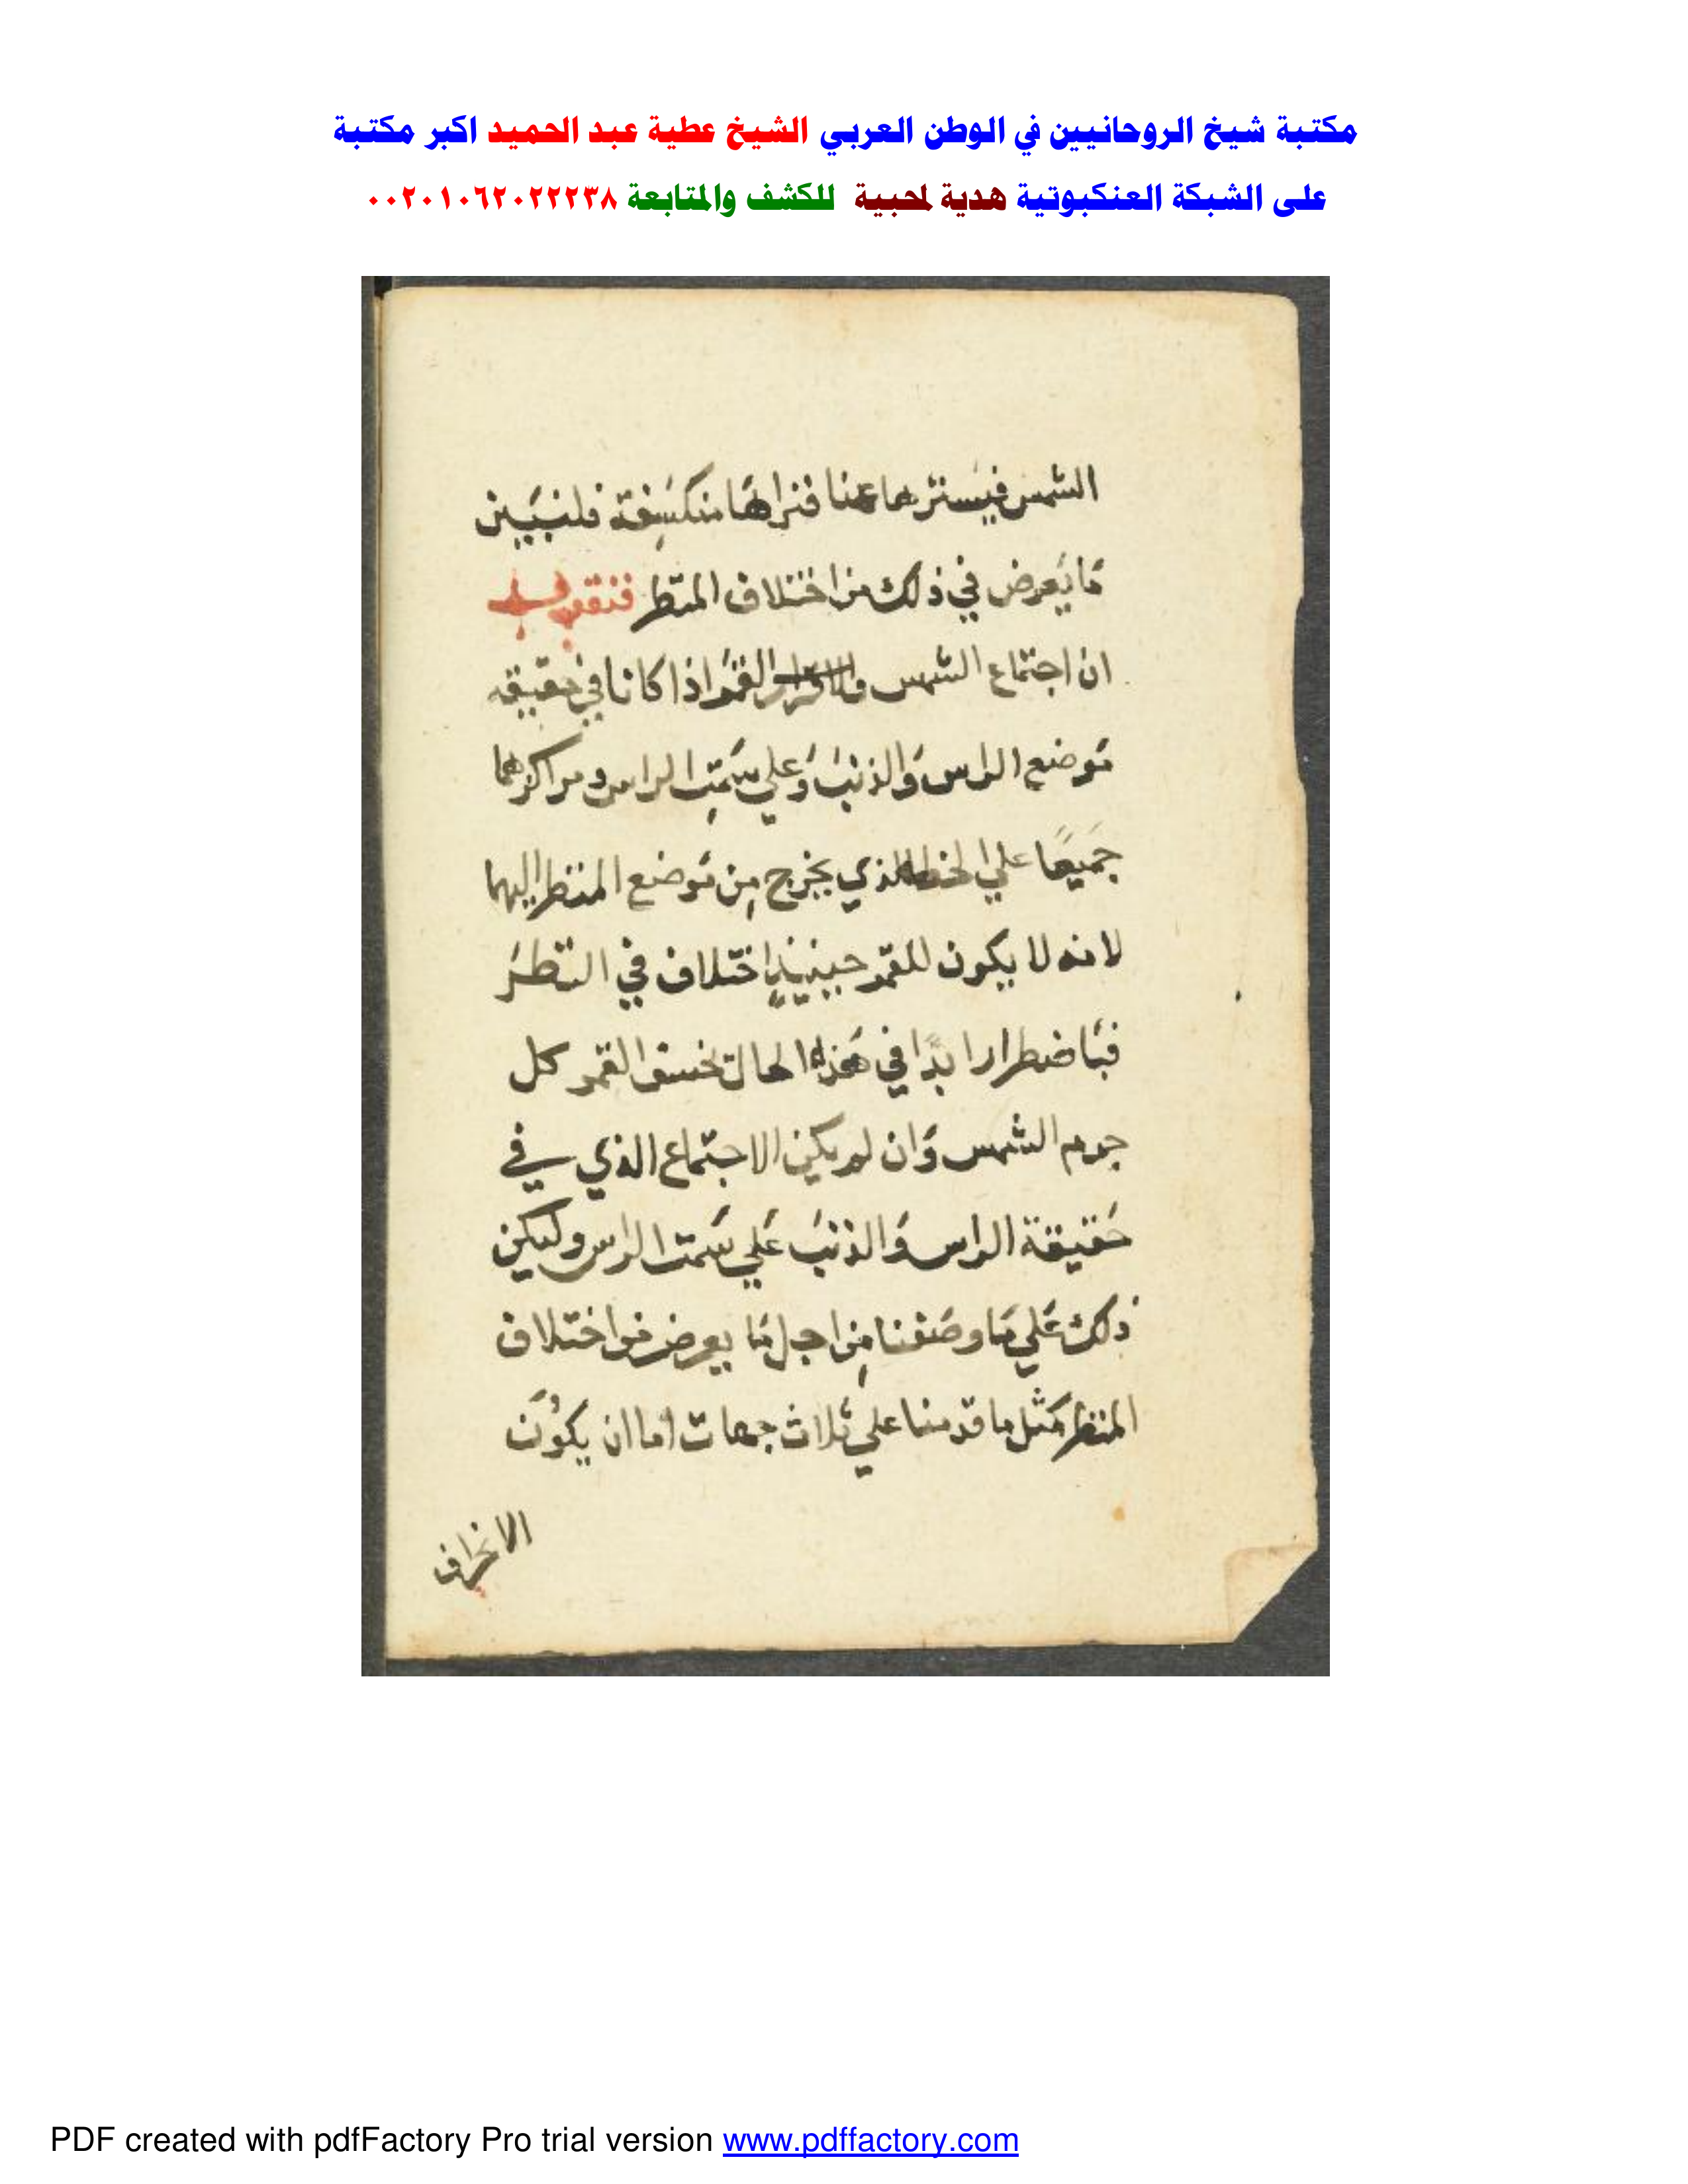 مكتبة شيخ الروحانيين في الوطن العربي الشيخ عطية عبد الحميد اكبر مكتبة
على الشبكة العنكبوتية هدية لمحبية للكشف والمتابعة ٠٠٢٠١٠٦٢٠٢٢٢٣٨
الشمس فيسترها عنا فنراها منكسفة فلنبين
مَا يَعرض في ذلك من اختلاف المنظر فنقول
ان اجتماع الشمس والقمر اذا كانا في حقيقه
مَوضع الراس وَالذنب وَعلي سَمت الراس ومراكزهما
جَميعًا علي الخط الذي يخرج مِن مَوضع المنظر اليهما
لانه لا يكون للقمر حينيذٍ اختلاف في النظر
فباضطرار ابدًا في هَذه الحال تخسف القمر كل
جرم الشمس وَان لم يكن الاجتماع الذي في
حَقيقة الراس وَالذنبَ عَلي سَمت الراس وليكن
ذلك عَلي مَا وصَفنا مِن اجل مَا يعرض من اختلاف
المنظر مَثل ما قدمنا علي ثلاث جهات اما ان يكوُنَ
الانحراف
PDF created with pdfFactory Pro trial version www.pdffactory.com